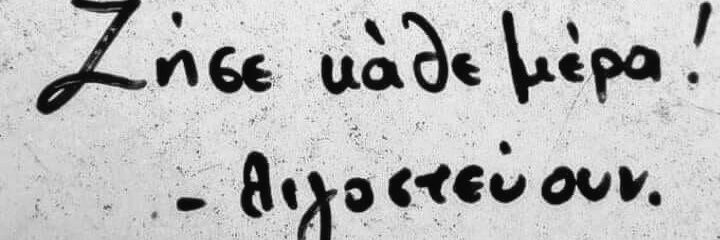 Ζήσε κάθε μέρα!
- Λιγοστεύουν.